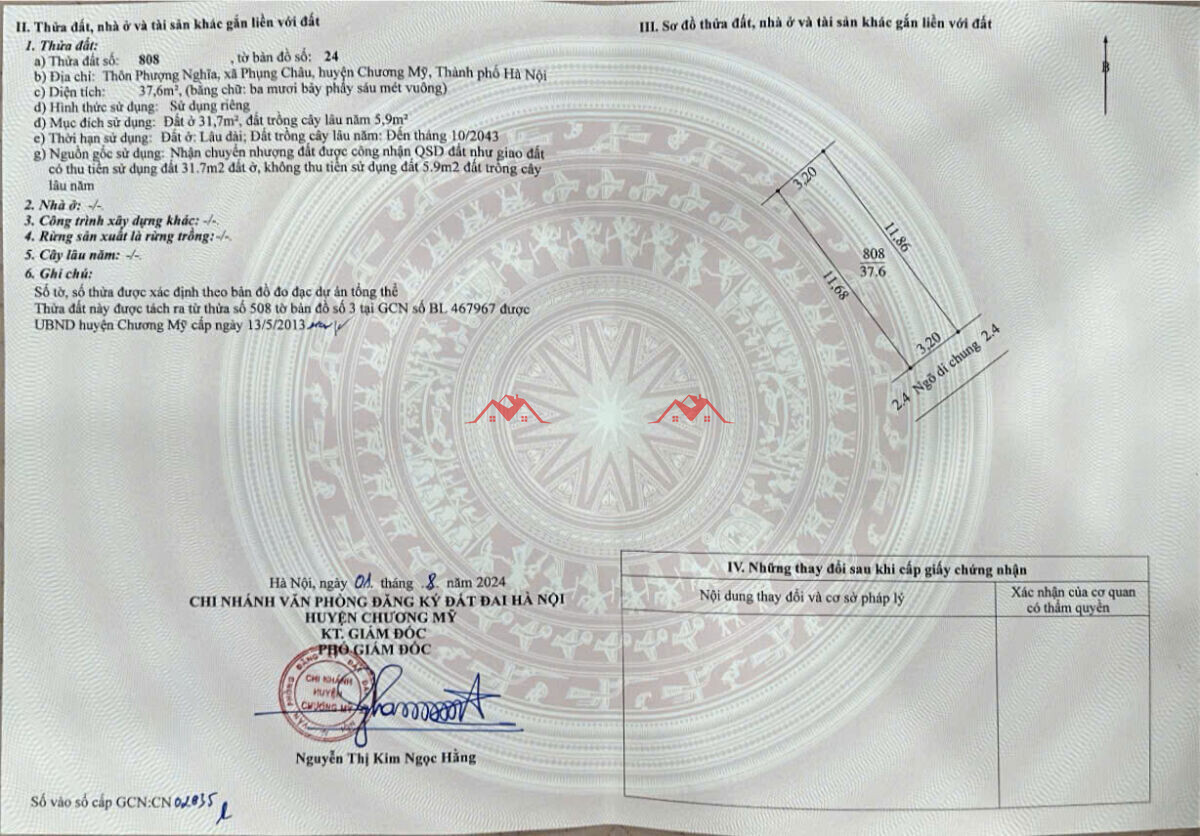 II. Thửa đất, nhà ở và tài sản khác gắn liền với đất
1. Thửa đất:
a) Thửa đất số: 808 , tờ bản đồ số: 24
b) Địa chỉ: Thôn Phượng Nghĩa, xã Phụng Châu, huyện Chương Mỹ, Thành phố Hà Nội
c) Diện tích: 37,6m², (bằng chữ: ba mươi bảy phẩy sáu mét vuông)
d) Hình thức sử dụng: Sử dụng riêng
đ) Mục đích sử dụng: Đất ở 31,7m², đất trồng cây lâu năm 5,9m²
e) Thời hạn sử dụng: Đất ở: Lâu dài; Đất trồng cây lâu năm: Đến tháng 10/2043
g) Nguồn gốc sử dụng: Nhận chuyển nhượng đất được công nhận QSD đất như giao đất
có thu tiền sử dụng đất 31.7m2 đất ở, không thu tiền sử dụng đất 5.9m2 đất trồng cây
lâu năm
2. Nhà ở: -/-.
3. Công trình xây dựng khác: -/-.
4. Rừng sản xuất là rừng trồng:-/-.
5. Cây lâu năm: -/-.
6. Ghi chú:
Số tờ, số thửa được xác định theo bản đồ đo đạc dự án tổng thể
Thửa đất này được tách ra từ thửa số 508 tờ bản đồ số 3 tại GCN số BL 467967 được
UBND huyện Chương Mỹ cấp ngày 13/5/2013
Hà Nội, ngày 01 tháng 8 năm 2024
CHI NHÁNH VĂN PHÒNG ĐĂNG KÝ ĐẤT ĐAI HÀ NỘI
HUYỆN CHƯƠNG MỸ
KT. GIÁM ĐỐC
PHÓ GIÁM ĐỐC
CHI NHÁNH
HUYỆN
CHƯƠNG MỸ
Nguyễn Thị Kim Ngọc Hằng
Số vào sổ cấp GCN:CN 02835
III. Sơ đồ thửa đất, nhà ở và tài sản khác gắn liền với đất
B
3,20
11,86
808
37.6
11,68
3,20
2.4 Ngõ đi chung 2.4
IV. Những thay đổi sau khi cấp giấy chứng nhận
Nội dung thay đổi và cơ sở pháp lý
Xác nhận của cơ quan
có thẩm quyền